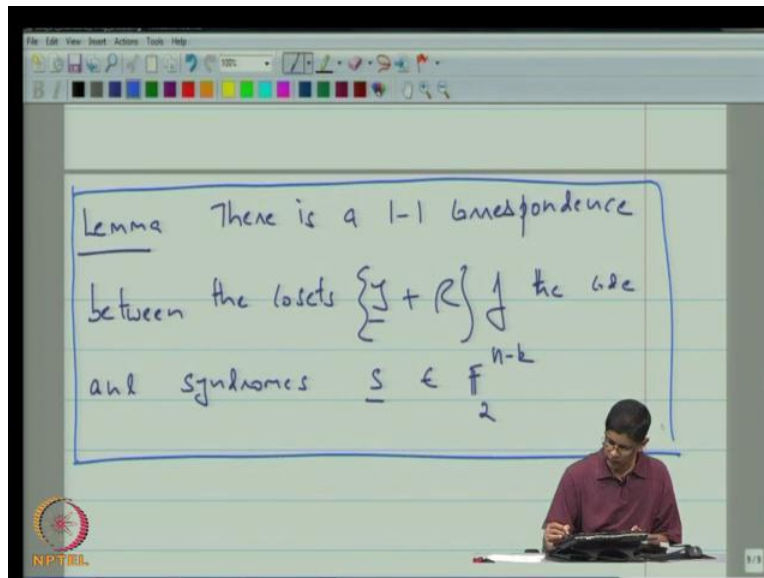 File Edit View Insert Actions Tools Help
100%
Lemma There is a 1-1 correspondence
between the cosets {y + C} of the code
and syndromes s ∈ F₂ⁿ⁻ᵏ
NPTEL
9/9